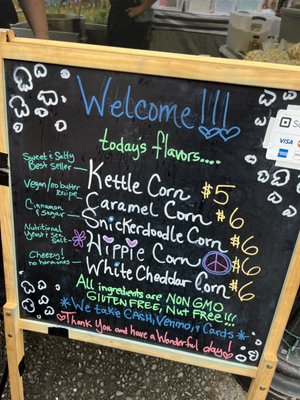 Welcome!!!
today's flavors....
Sweet & Salty
Best Seller
Kettle Corn $5
Vegan/no butter
recipe
Caramel Corn $6
Cinnamon
& sugar
Snickerdoodle Corn $6
Nutritional
Yeast & sea
salt
Hippie Corn $6
Cheezy!
no hormones
White Cheddar Corn $6
All ingredients are NON GMO
GLUTEN FREE, Nut FREE!!!
We take CASH, Venmo, & Cards
Thank You and have a Wonderful day!
VISA